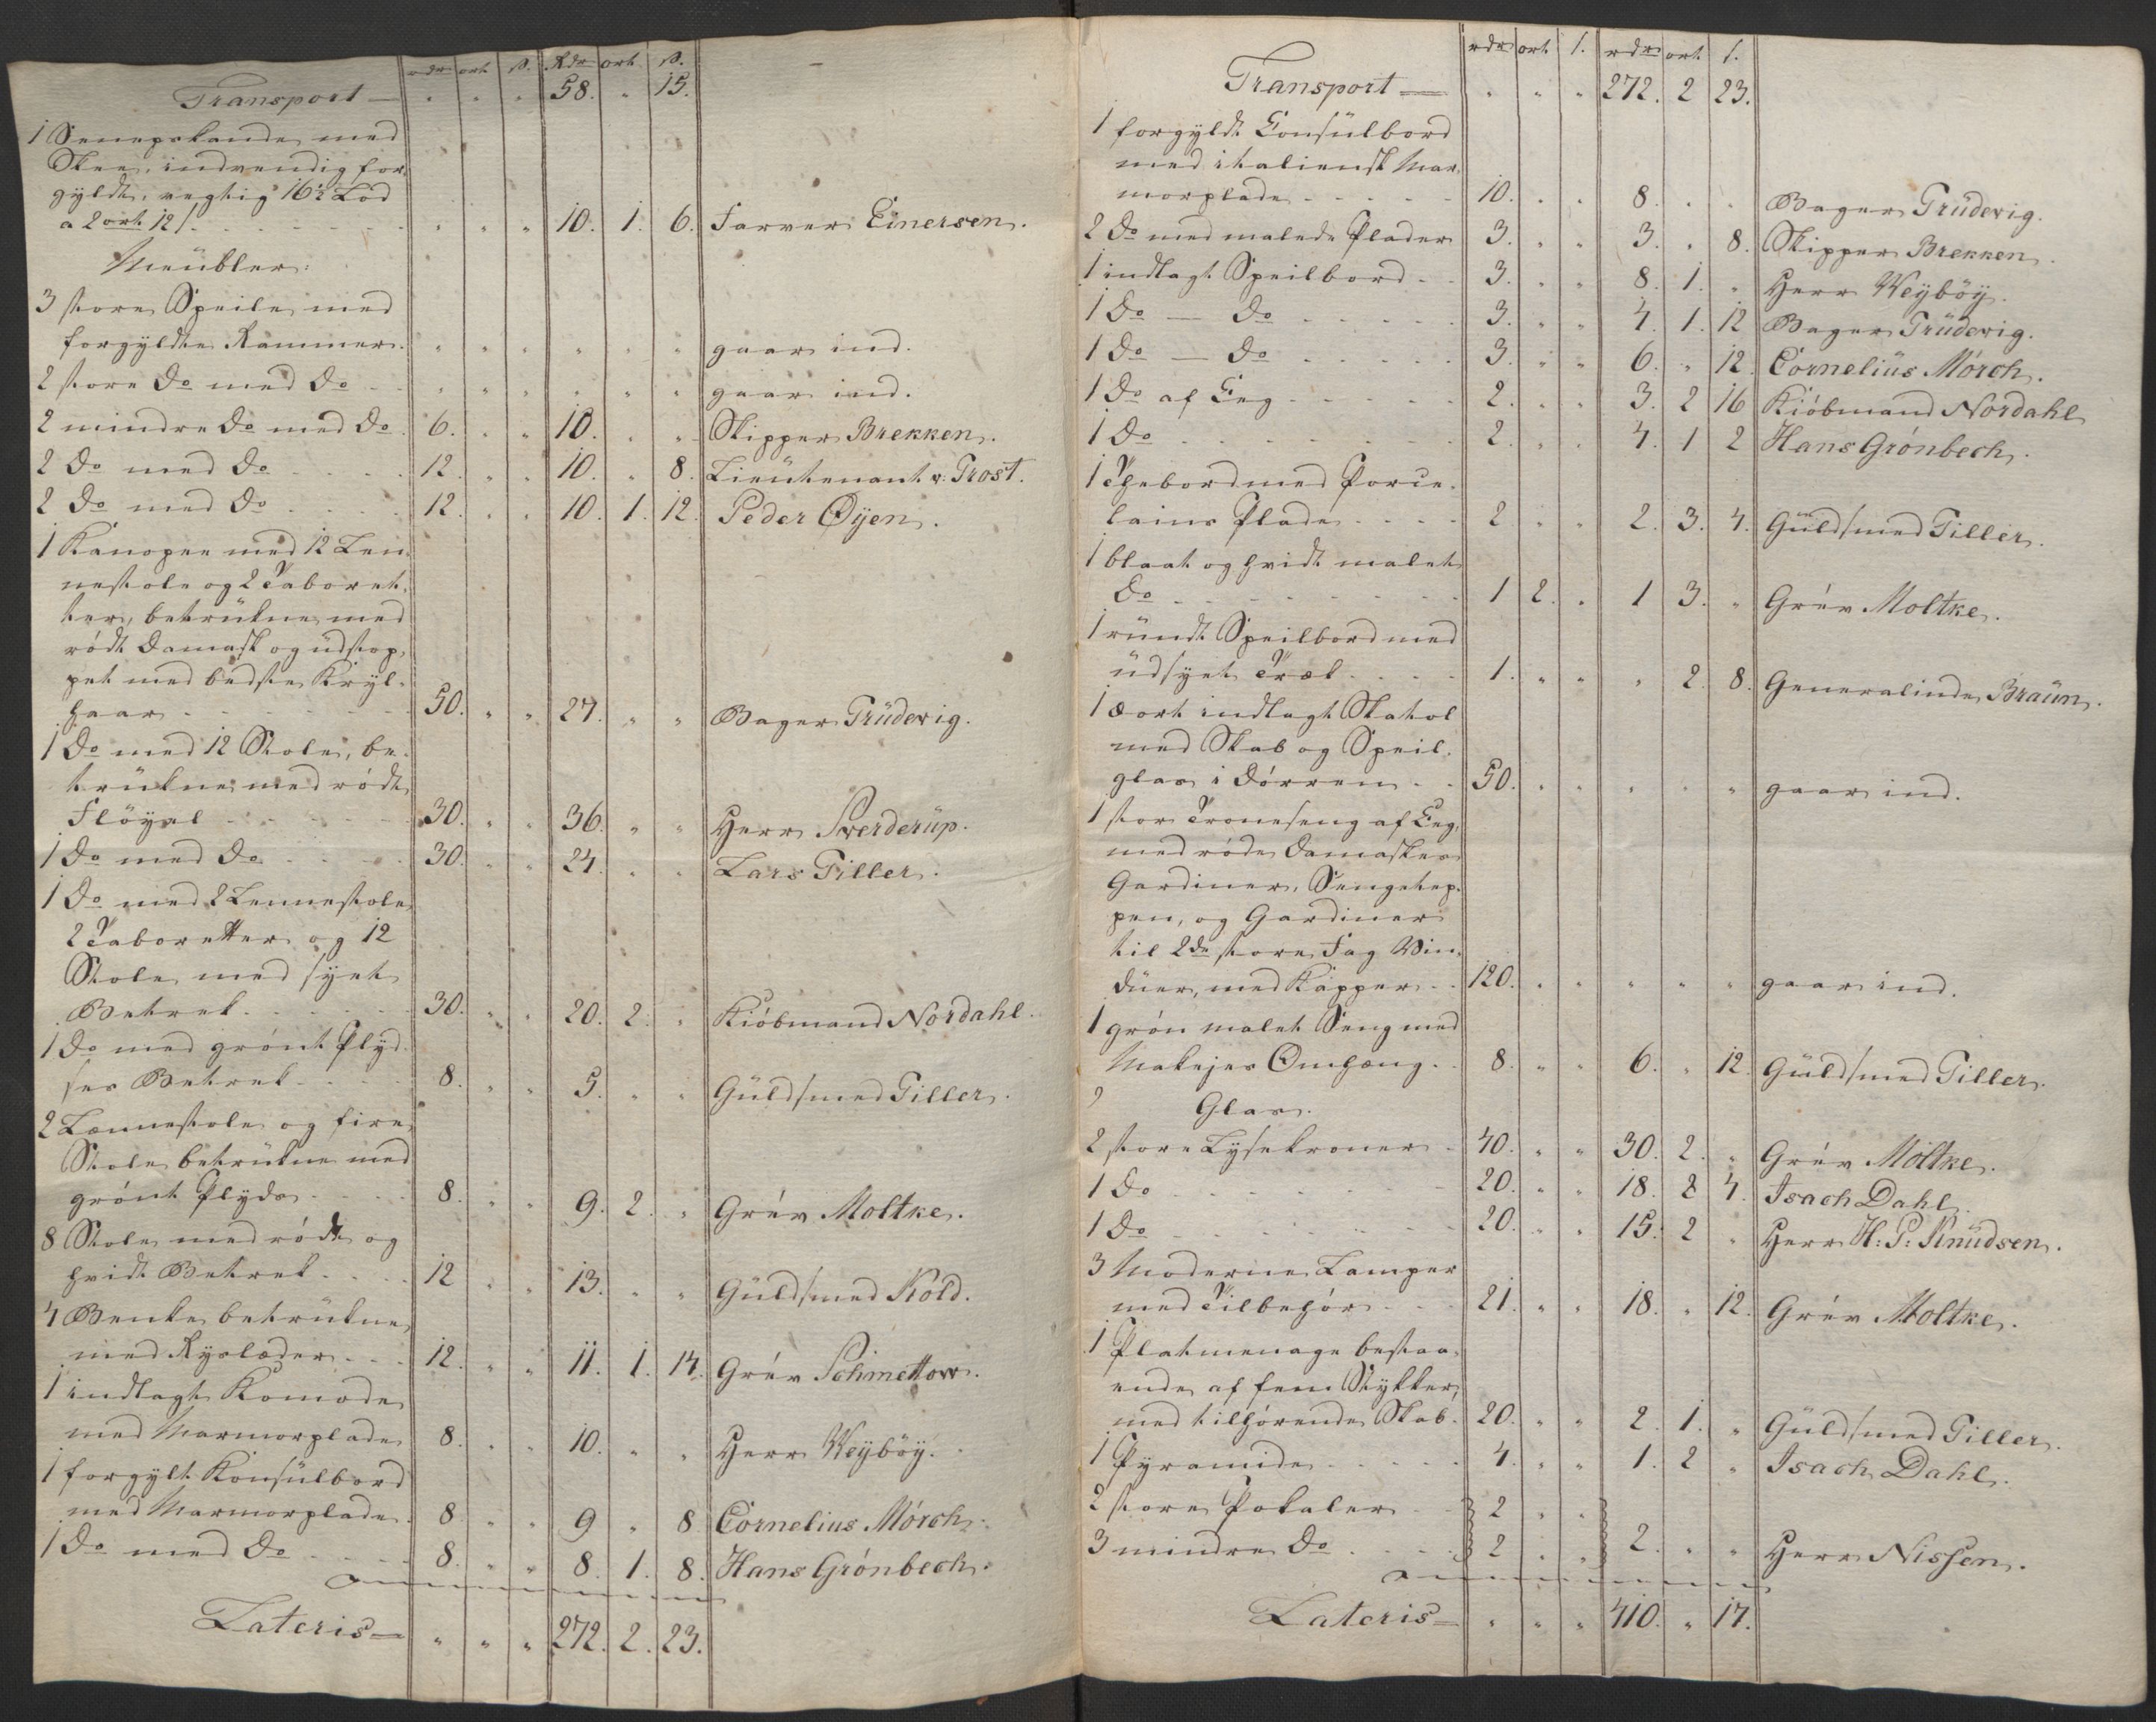 rdr ort ß. Rdr ort. ß.
Transport — " " " 58. " 15.
1 Senepskande med
Skee, indvendig for-
gyldt, vegtig 16½ Lod
a 2 ort 12 s. . . . " " " 10. 1. 6. Farver Einersen.
Meübler:
3 store Speile med
forgyldte Rammer. " " " " " " gaar ind.
2 store Do med Do . . " " " " " " gaar ind.
2 mindre Do med Do. 6. " " 10. " " Skipper Brekken.
2 Do med Do . . . . 12. " " 10. " 8. Lieutenant v: Trost.
2 Do med Do . . . . 12. " " 10. 1. 12. Peder Øyen.
1 Kanopee med 12 Len-
nestole og 2 Taboret-
ter, betrükne med
rödt Damask og üdstop-
pet med bedste Kryl-
haar . . . . . 50. " " 27. " " Bager Trüdevig.
1 Do med 12 Stole, be-
trükne med rödt
Flöyel . . . . . 30. " " 36. " " Herr Sverderüp.
1 Do med Do . . . . 30. " " 24. " " Lars Tiller.
1 Do med 2 Lennestole
2 Taboretter og 12
Stole med syet
Betrek . . . . . 30. " " 20. 2. " Kiöbmand Nordahl.
1 Do med grönt Plyd-
ses Betrek . . . . 8. " " 5. " " Güldsmed Tiller.
2 Lænnestole og fire
Stole betrükne med
grönt Plyds . . . . 8. " " 9. 2. " Grév Moltke.
8 Stole med rödt og
hvidt Betrek . . . . 12 " " 13. " " Güldsmed Kold.
4 Benke betrükne
med Ryslæder . . . 12. " " 11. 1. 14. Grév Schmettow.
1 indlagt Komode
med Marmorplade 8. " " 10. " " Herr Weyböy.
1 forgylt Konsülbord
med Marmorplade. 8. " " 9 " 8. Cornelius Mörch.
1 Do med Do . . . . 8. " " 8. 1. 8. Hans Grönbech.
Lateris — " " " 272. 2. 23.
rdr ort. s. rdr ort. s.
Transport — " " " 272. 2 23.
1 forgyldt Consülbord
med italiensk Mar-
morplade . . . . . 10. " " 8. " " Bager Trüdevig.
2 Do med malede Plader 3. " " 3. " 8. Skipper Brekken.
1 indlagt Speilbord . . 3. " " 8. 1. " Herr Weyböy.
1 Do — Do . . . . . 3. " " 4. 1. 12 Bager Trüdevig.
1 Do — Do . . . . . 3. " " 6. " 12. Cornelius Mörch.
1 Do af Eeg . . . . . 2. " " 3. 2 16 Kiöbmand Nordahl
1 Do . . . . . . . 2. " " 4. 1 2 Hans Grönbech.
1 Thebord med Porce-
lains Plade . . . . 2 " " 2. 3. 4. Güldsmed Tiller.
1 blaat og hvidt malet
Do . . . . . . . 1 2. " 1 3. " Grév Moltke.
1 ründt Speilbord med
üdsyet Træk . . . . 1. " " " 2. 8. Generalinde Braün.
1 stort indlagt Skatol
med Skab og Speil-
glas i Dörren . . 50. " " " " " gaar ind.
1 stor Troneseng af Eeg,
med röde Damaskes
Gardiner, Sengetep-
pen, og Gardiner
til 2de store Fag Vin-
düer, med Kapper . . 120. " " " " " gaar ind.
1 grön malet Seng med
Makejes Omhæng . . 8. " " 6. " 12. Güldsmed Tiller.
Glas.
2 store Lysekroner . 40. " " 30. 2. " Grév Moltke.
1 Do . . . . . . . 20. " " 18. 2 4. Isach Dahl.
1 Do . . . . . . . 20. " " 15. 2 " Herr H: P: Knüdsen.
3 Moderne Lamper
med Tilbehör . . . 21. " " 18. " 12. Grév Moltke.
1 Platmenage bestaa-
ende af fem Stykker,
med tilhörende Skab. 20. " " 2. 1. " Güldsmed Tiller.
1 Pyramide . . . . . 4. " " 1. 2 " Isach Dahl.
2 store Pokaler . . 2 " "
3 mindre Do . . . . 2 " " 2. " " Herr Nissen.
Lateris — " " " 410. " 17.